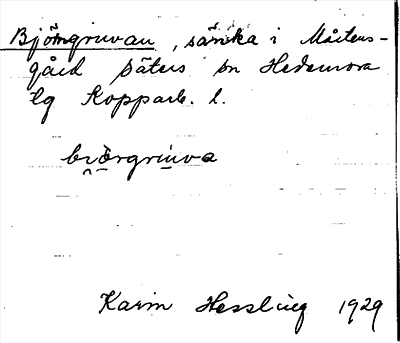 Björngruvan, sänka i Mårtens-
gård Säters sn Hedemora
tg Kopparb. l.
bi̯ö̯rgru̲va
Karin Hessling 1929